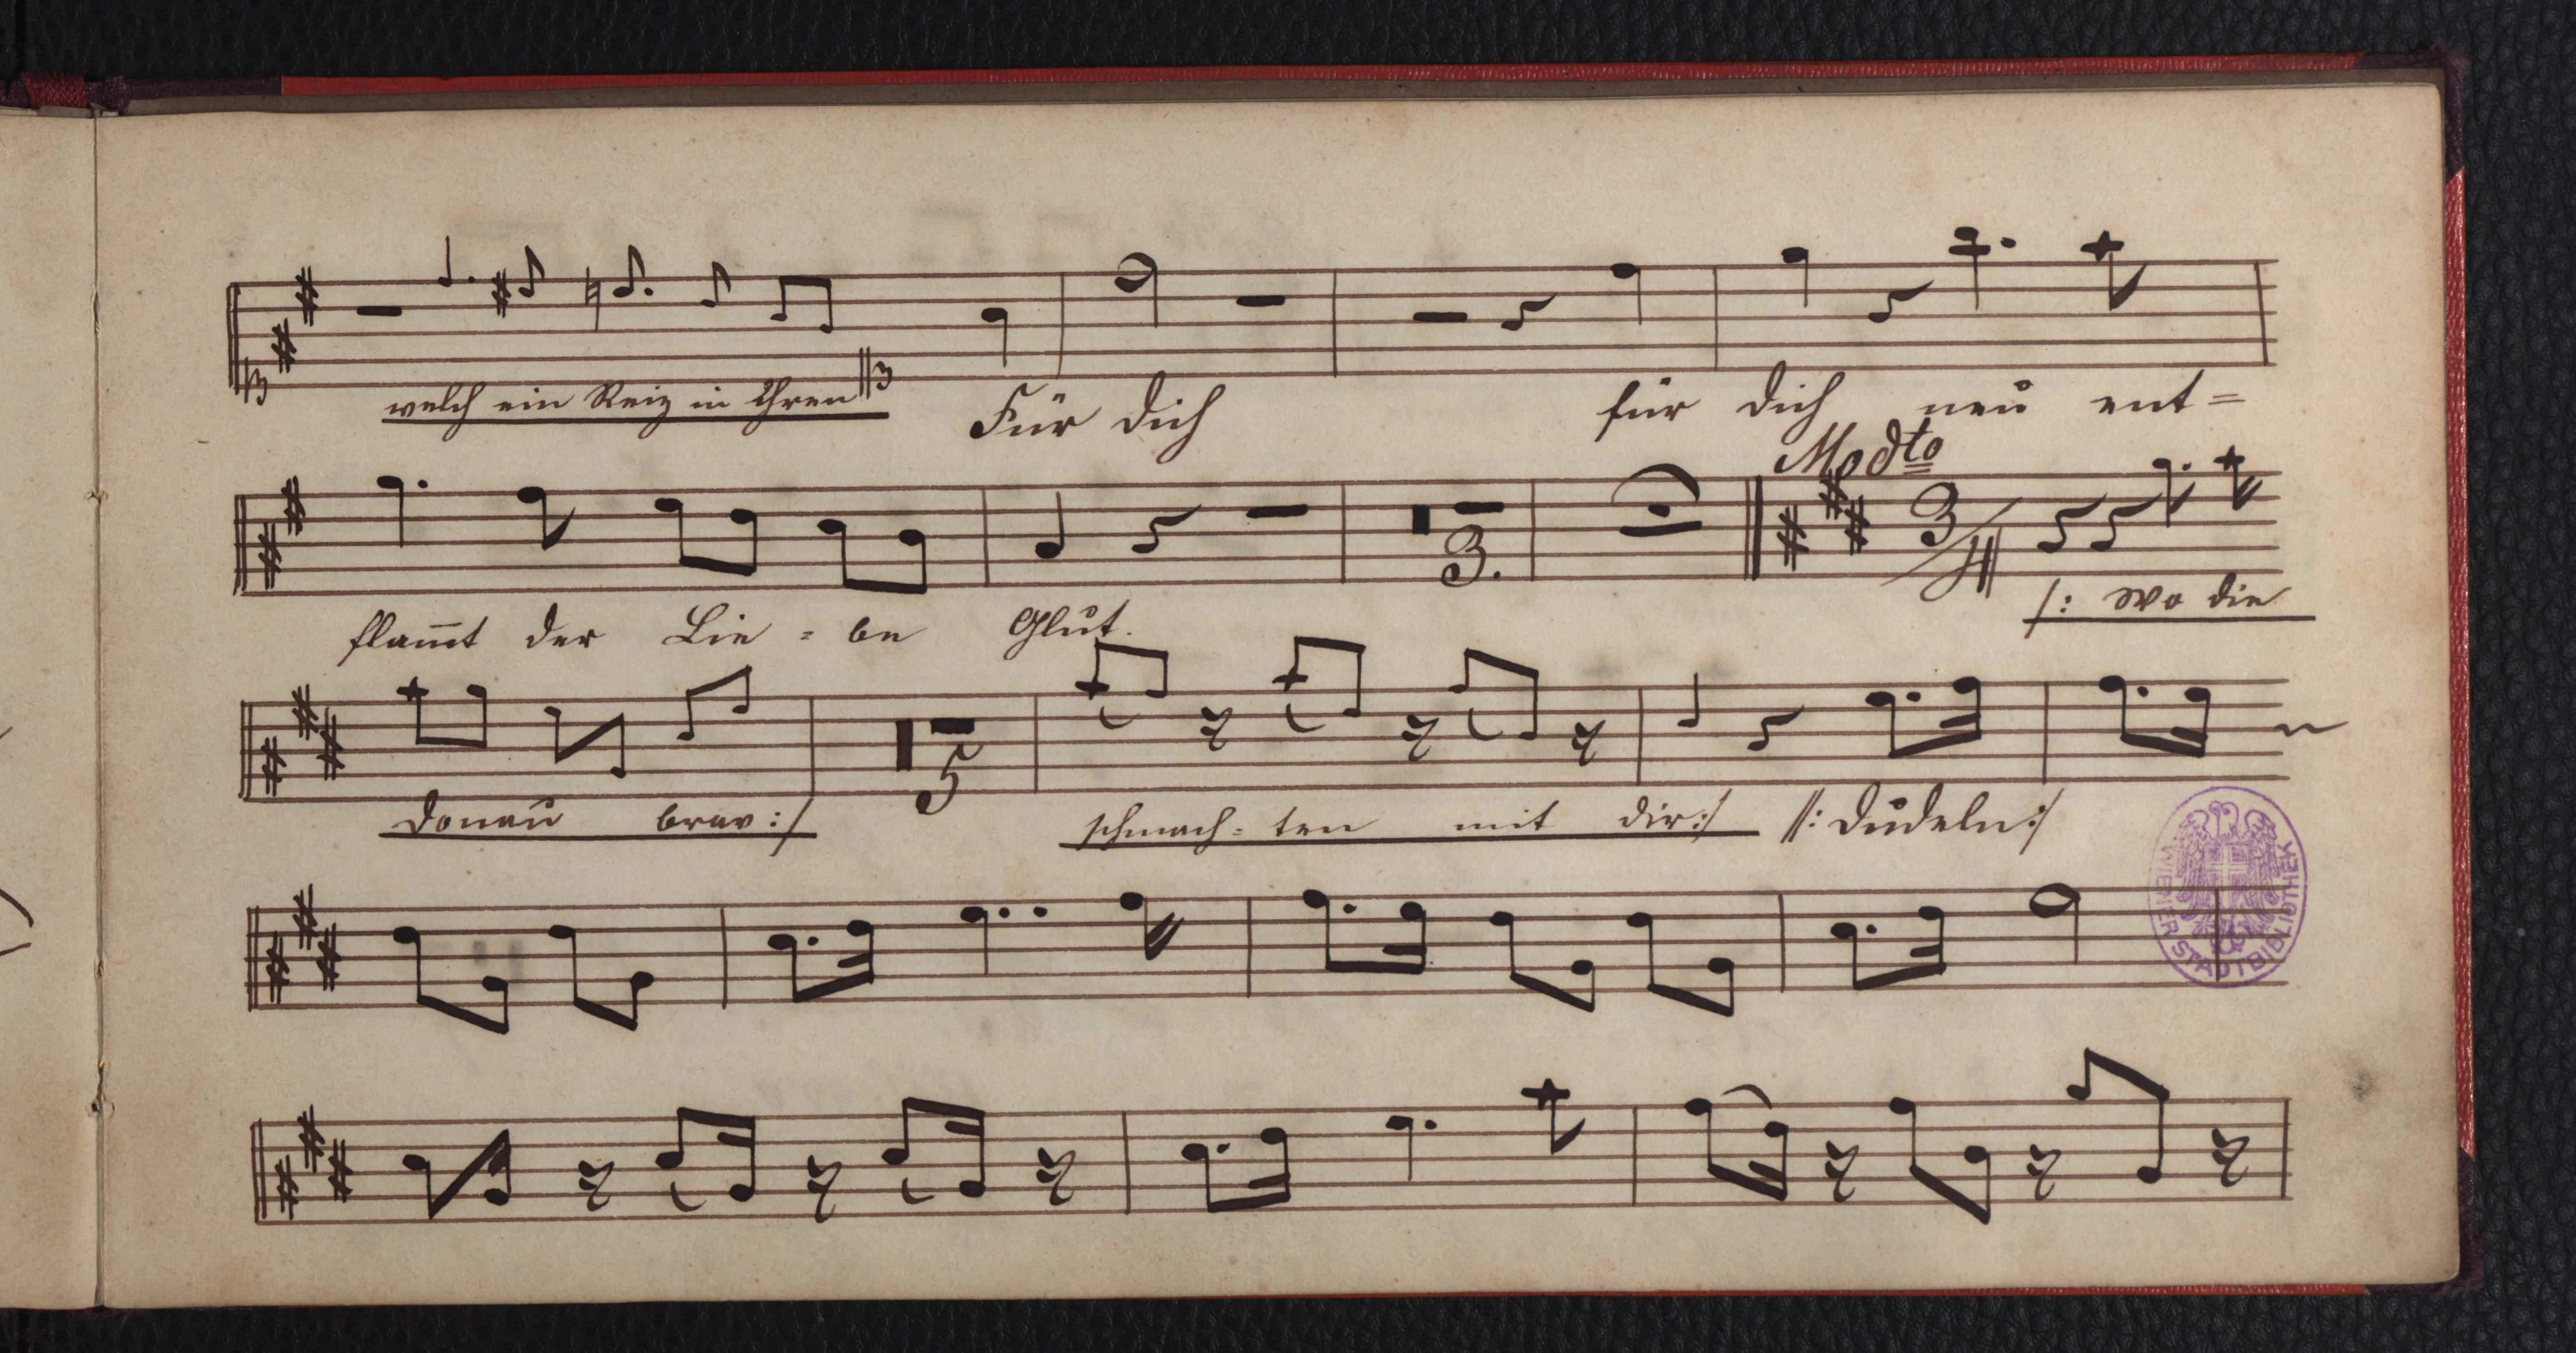 welch ein Reiz in Ihren Für dich für dich neu ent=
Modto
3/4
flam̅t der Lie = be Glut. /: Wo die
3.
Donau brav :/ schmach = ten mit dir :/ //: Dudeln :/
5
WIENER STADTBIBLIOTHEK